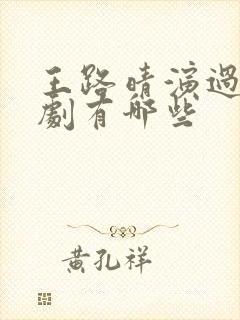 王路晴演過
劇有哪些
黃孔祥